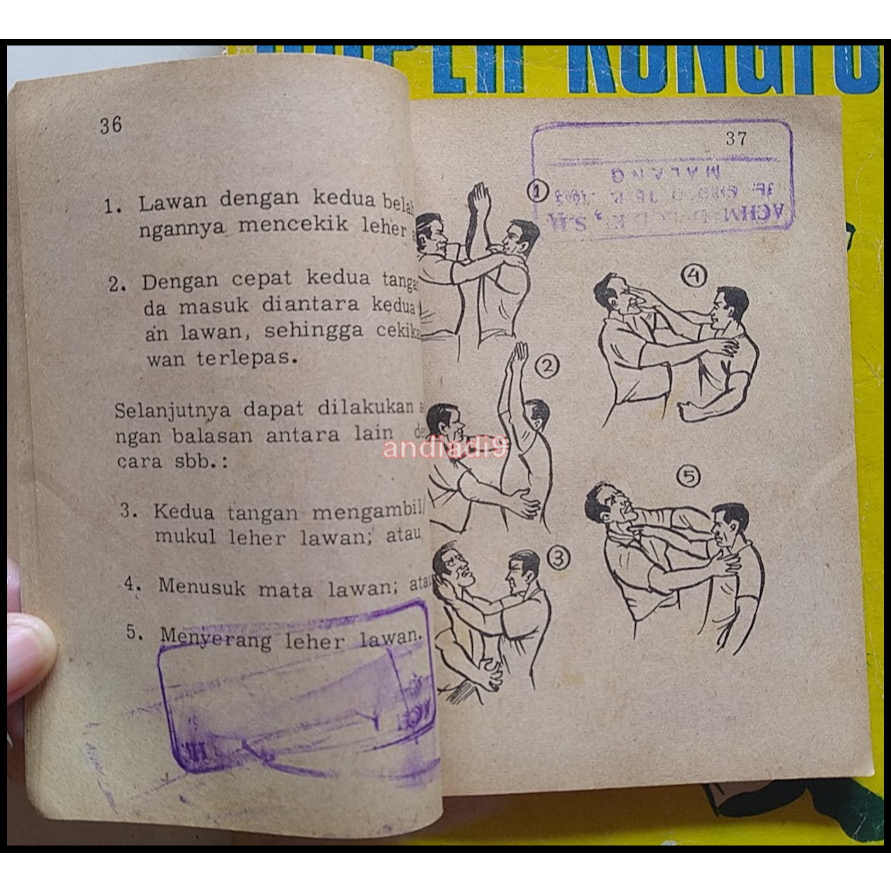 KUNGFU
36
1. Lawan dengan kedua
ngannya mencekik leher
2. Dengan cepat kedua
da masuk diantara kedua
an lawan, sehingga
wan terlepas.
Selanjutnya dapat dilakukan
ngan balasan antara lain
cara sbb.:
3. Kedua tangan mengambil/
mukul leher lawan; atau
4. Menusuk mata lawan;
5. Menyerang leher lawan.
37
MALANG
1
2
3
4
5
andiadi9